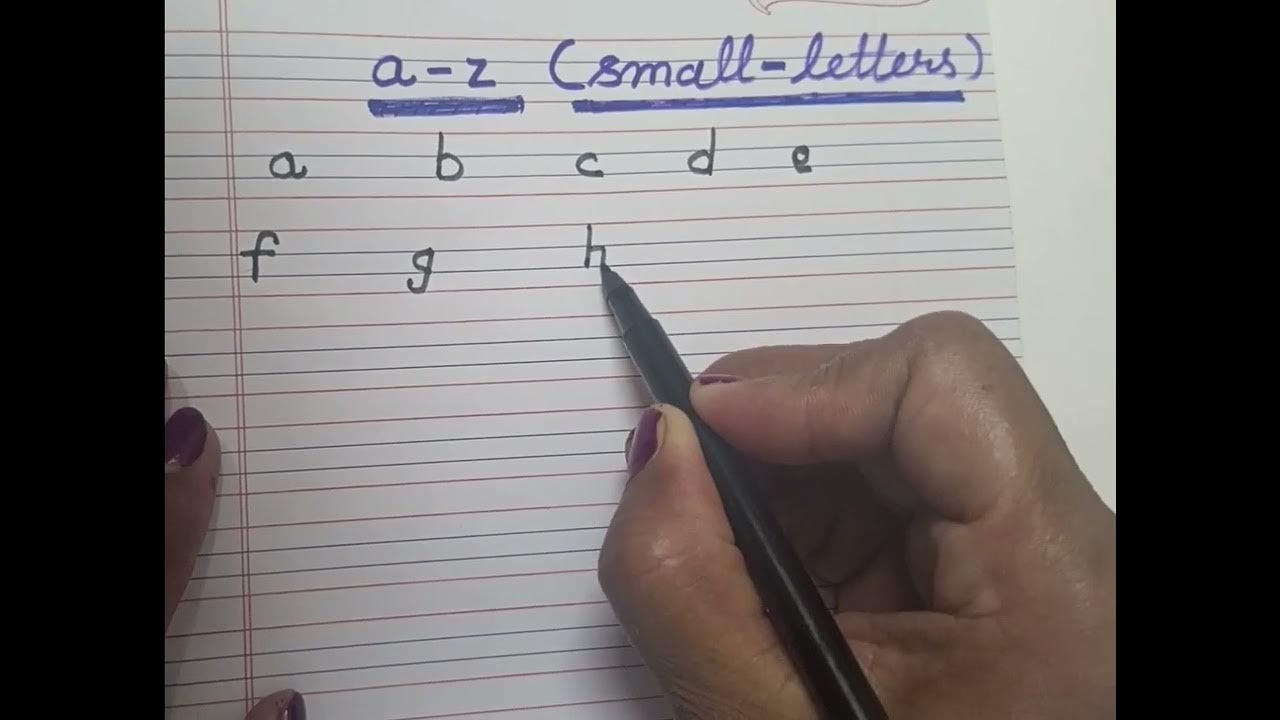 a-z (small-letters)
a b c d e
f g h